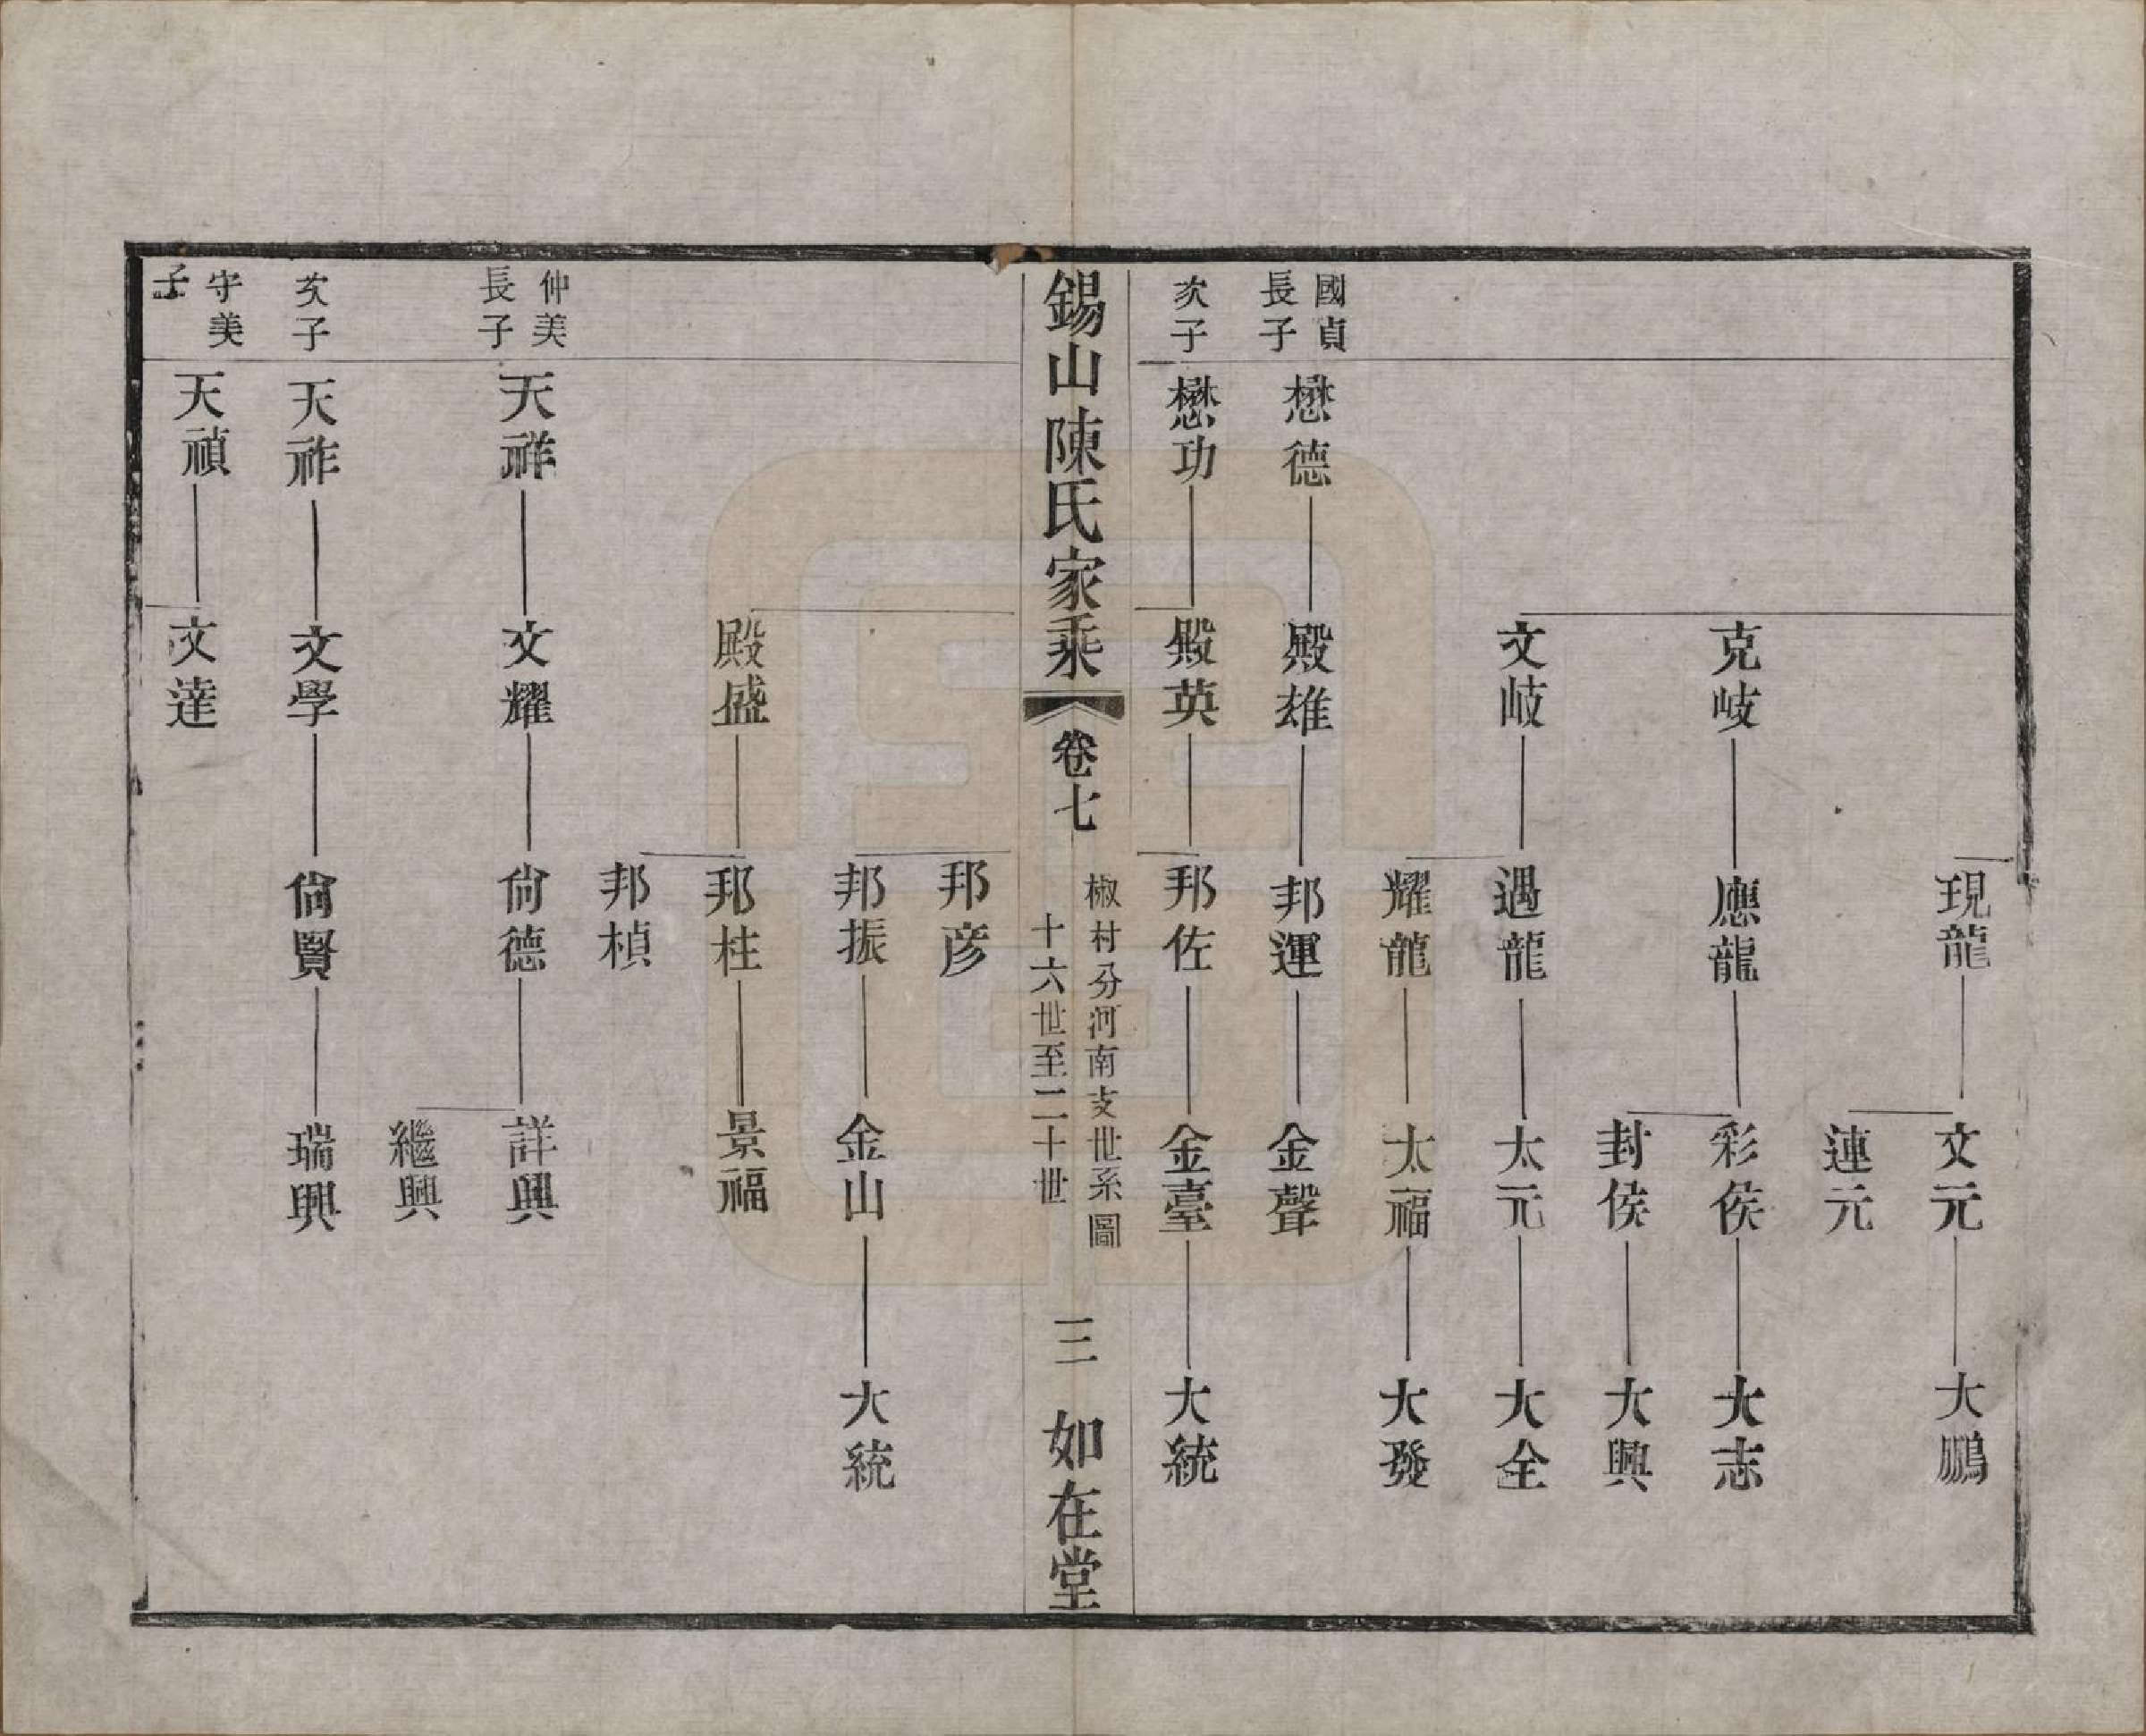 現龍 文元 大鵬
連元
克岐 應龍 彩侯 大志
封侯 大興
文岐 遇龍 太元 大全
耀龍 太福 大發
國貞
長子 懋德 殿雄 邦運 金聲
次子 懋功 殿英 邦佐 金臺 大統
錫山陳氏家乘 卷七 椒村分河南支世系圖
十六世至二十世 三 如在堂
邦彦
邦振 金山 大統
殿盛 邦柱 景福
邦楨
仲美
長子 天祥 文耀 尙德 詳興
繼興
次子 天祚 文學 尙賢 瑞興
守美
子 天禎 文達